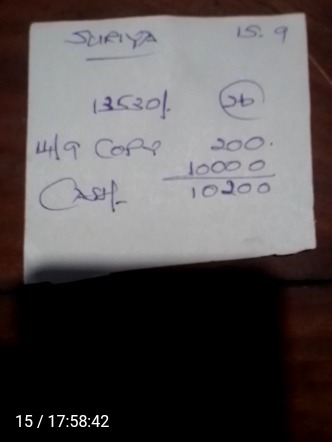 SURIYA 15.9
13530/. 26
4/9 COPY 200.
10000
Cash 10200
15 / 17:58:42